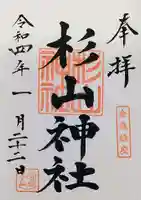 奉拝
杉山神社
令和四年一月二十二日